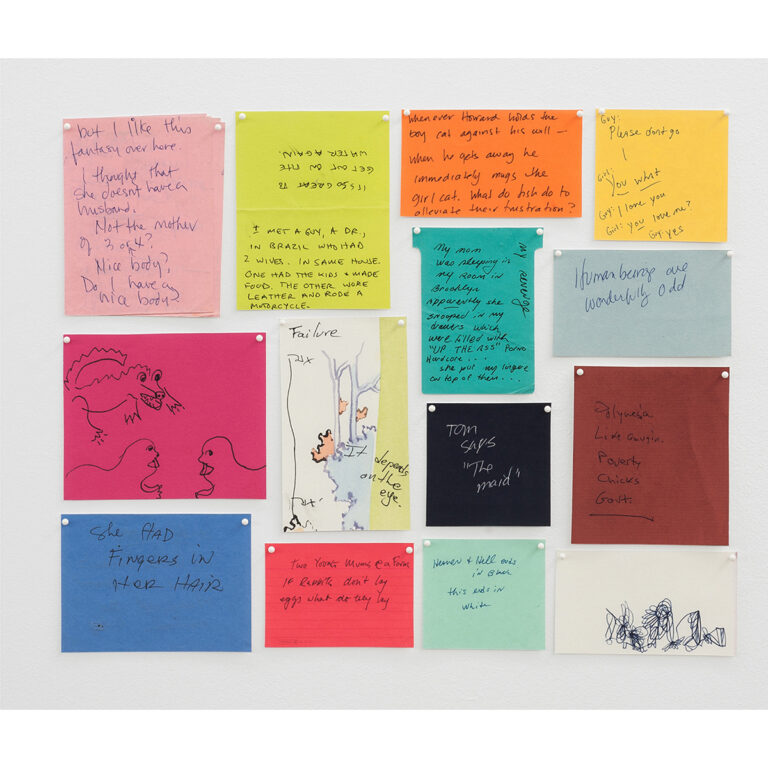 but I like this
fantasy over here.
I thought that
she doesnt have a
husband.
Not the mother
of 3 or 4?
Nice body?
Do I have a
nice body?
IT'S SO GREAT TO
GET OUT ON THE
WATER AGAIN.
I MET A GUY, A DR.,
IN BRAZIL WHO HAD
2 WIVES. IN SAME HOUSE.
ONE HAD THE KIDS & MADE
FOOD. THE OTHER WORE
LEATHER AND RODE A
MOTORCYCLE.
whenever Howard holds the
boy cat against his will —
when he gets away he
immediately mugs the
girl cat. What do fish do to
alleviate their frustration?
Guy:
Please dont go
I
Girl:
You what
Guy: I love you
Girl: you love me?
Guy: yes
My mom
was sleeping in
my room in
Brooklyn
Apparently she
snooped in my
drawers which
were filled with
"UP THE ASS" Porno
Hardcore...
she put my lingere
on top of them...
my revenge
Human beings are
wonderfully odd
Failure
It depends
on the
eye.
TOM
says
"The
maid"
Polynesia
Poverty
Chicks
Govt.
She HAD
FINGERS IN
HER HAIR
Two Young Mums @ a Farm
If Rabbits don't lay
eggs what do they lay
Heaven & Hell ends
in Black
this ends in
White